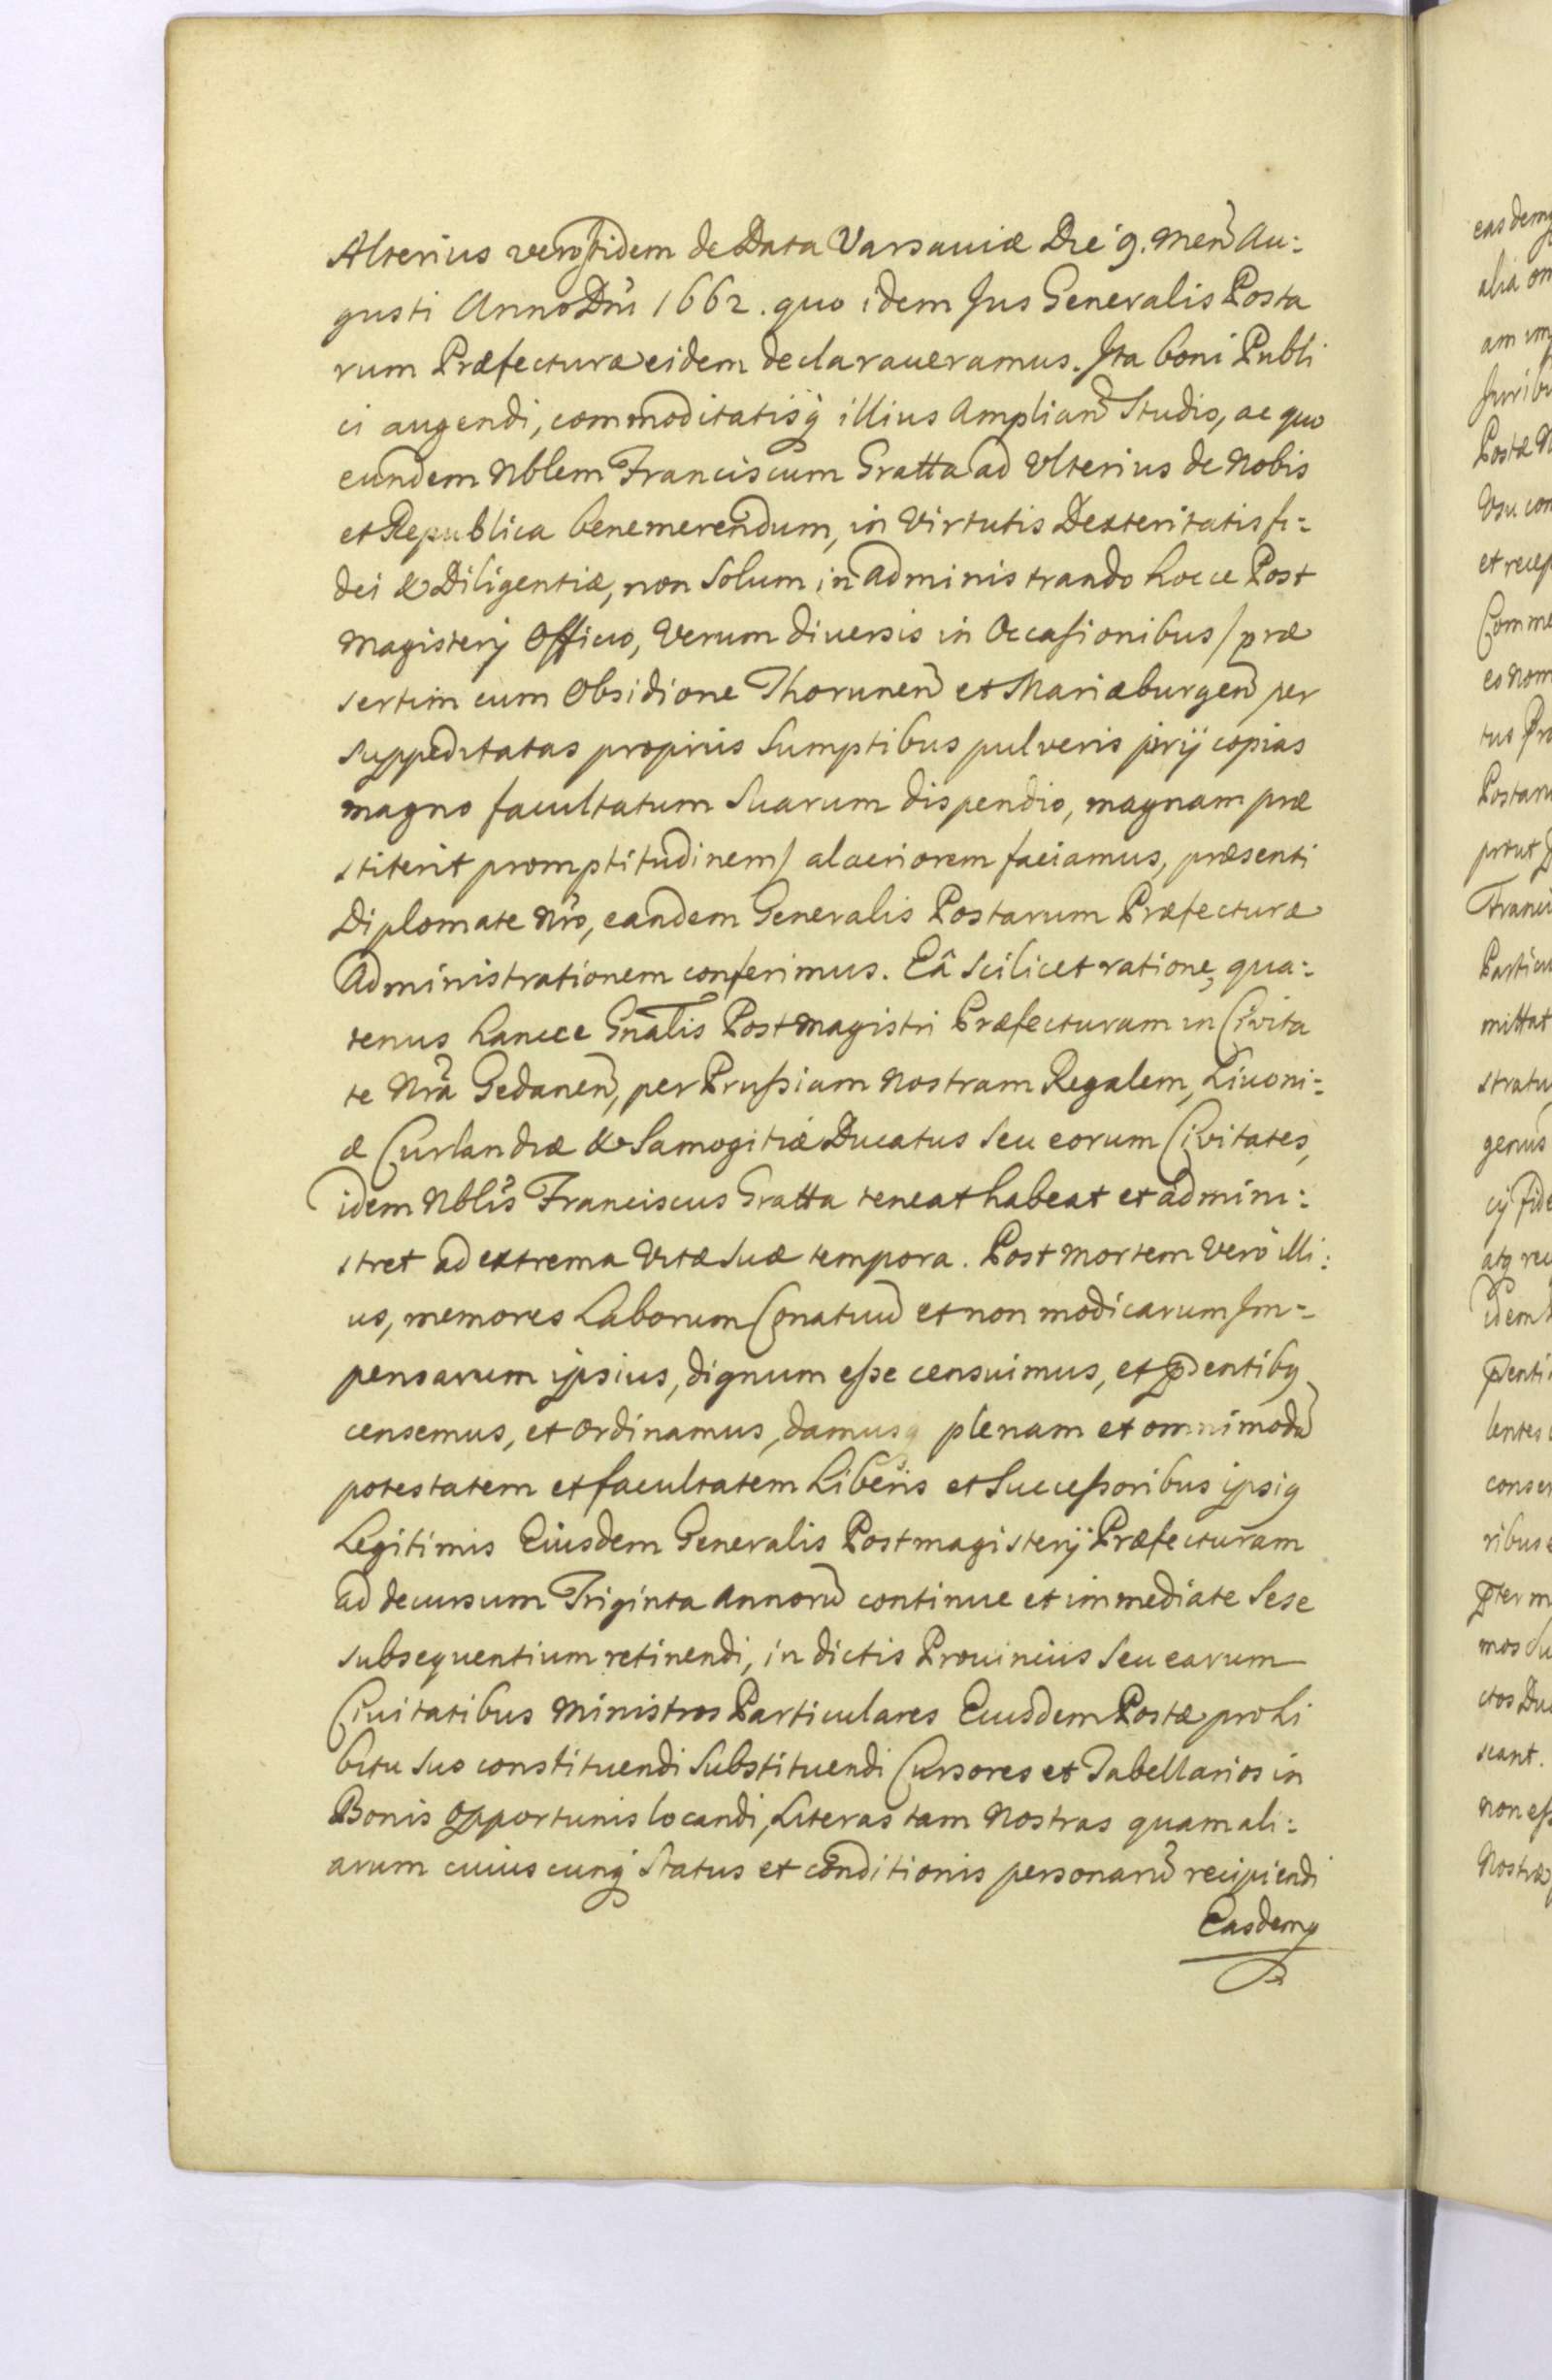 Alterius vero itidem de Data Varsauiæ Die 9. Men̄ Au:
gusti Anno Dn̄i 1662. quo idem Jus Generalis Posta
rum Præfecturæ eidem declaraueramus. Ita boni Publi
ci augendi, commoditatisq̨ illius Ampliand̄ Studio, ac quo
eundem Nblem Franciscum Gratta ad Ulterius de Nobis
et Republica benemerendum, in Virtutis Dexteritatis fi=
dei & Diligentiæ, non Solum in administrando hocce Post
Magisterij Officio, Verum diuersis in Occasionibus / præ
sertim cum Obsidione Thorunen̄ et Mariæburgen̄ per
suppeditatas proprijs Sumptibus pulveris pyrij copias
magno facultatum Suarum dispendio, magnam præ
stiterit promptitudinem / alacriorem faciamus, præsenti
Diplomate Nr̄o, eandem Generalis Postarum Præfecturæ
Administrationem conferimus. Eâ scilicet ratione, qua:
tenus hancce Gn̄alis Postmagistri Præfecturam in Civita
te Nr̄a Gedanen̄, per Prussiam Nostram Regalem, Livoni:
æ Curlandiæ & Samogitiæ Ducatus seu eorum Civitates,
idem Nblis Franciscus Gratta teneat habeat et admini:
stret ad extrema Vitæ Suæ tempora. Post mortem Verò illi:
us, memores Laborum Conatuū et non modicarum Im=
pensarum ipsius, dignum esse censuimus, et p̄sentibq
censemus, et ordinamus, damusq̨ plenam et omnimodā
potestatem et facultatem Liberis et Successoribus ipsiq
Legitimis Eiusdem Generalis Postmagisterij Præfecturam
ad decursum Triginta Annorū continue et immediate Sese
subsequentium retinendi, in dictis Prouincijs Seu earum
Ciuitatibus Ministros Particulares Eiusdem Postæ pro li
bitu Suo constituendi Substituendi Cursores et Tabellarios in
Bonis Opportunis locandi, Literas tam Nostras quam ali:
arum cuiuscunq̨ Status et conditionis personarū recipiendi
Easdemq̨
easdemq̨
alia om
am im
Juribu
Postæ N
Usu con
et recep
Comme
eo nom
tus Pro
Postaru
prout D
Franci
Particu
mittat
stratu
genus
cij fide
atq rec
idem
p̄senti
lentes
conser
ribus e
p̄ter m
mos Su
ctos Du
scant.
non ess
Nostræ